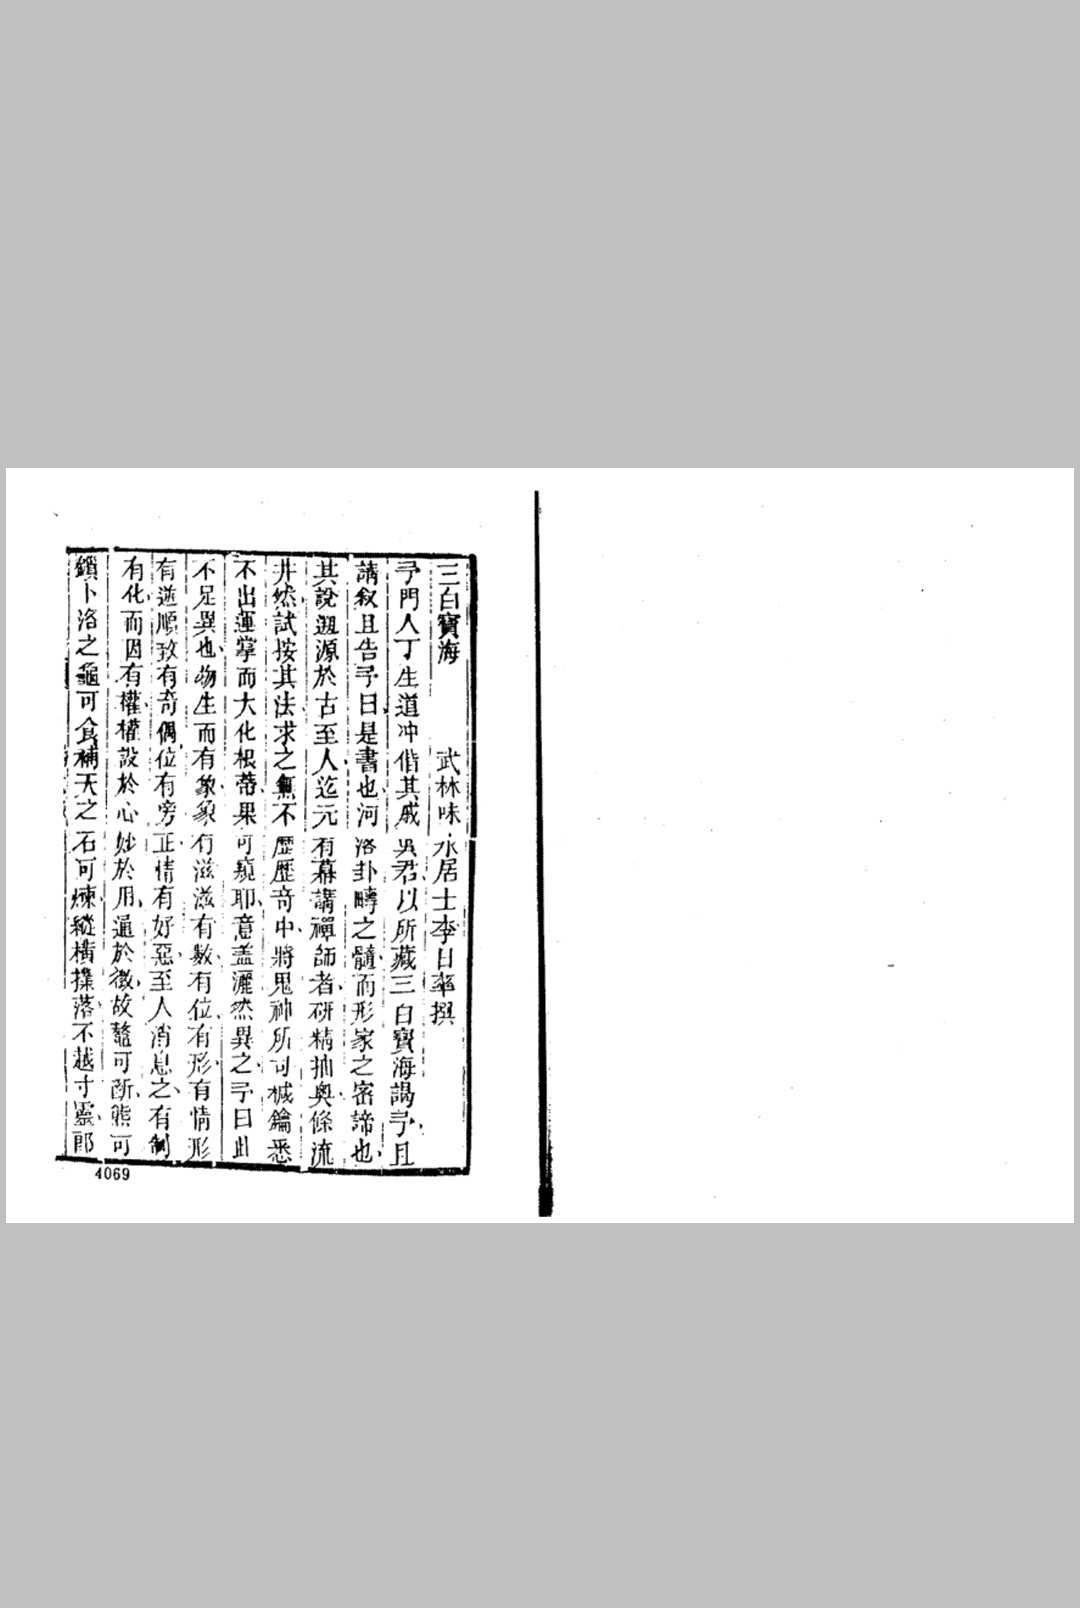 三白寶海 武林味水居士李日華撰
予門人丁生道冲偕其戚吳君以所藏三白寶海謁予且
請叙且告予曰是書也河洛卦疇之髓而形家之密諦也
其說遡源於古至人迄元有幕講禪師者研精抽奧條流
井然試按其法求之無不歷歷竒中將鬼神所司椷鑰悉
不出運掌而大化根蒂果可窺耶意盖灑然異之予曰此
不足異也物生而有象象有滋滋有數有位有形有情形
有逆順致有奇偶位有旁正情有好惡至人消息之有制
有化而因有權權設於心妙於用通於微故鼇可斷熊可
鎖卜洛之龜可食補天之石可煉縱橫揲落不越寸靈郎
4069